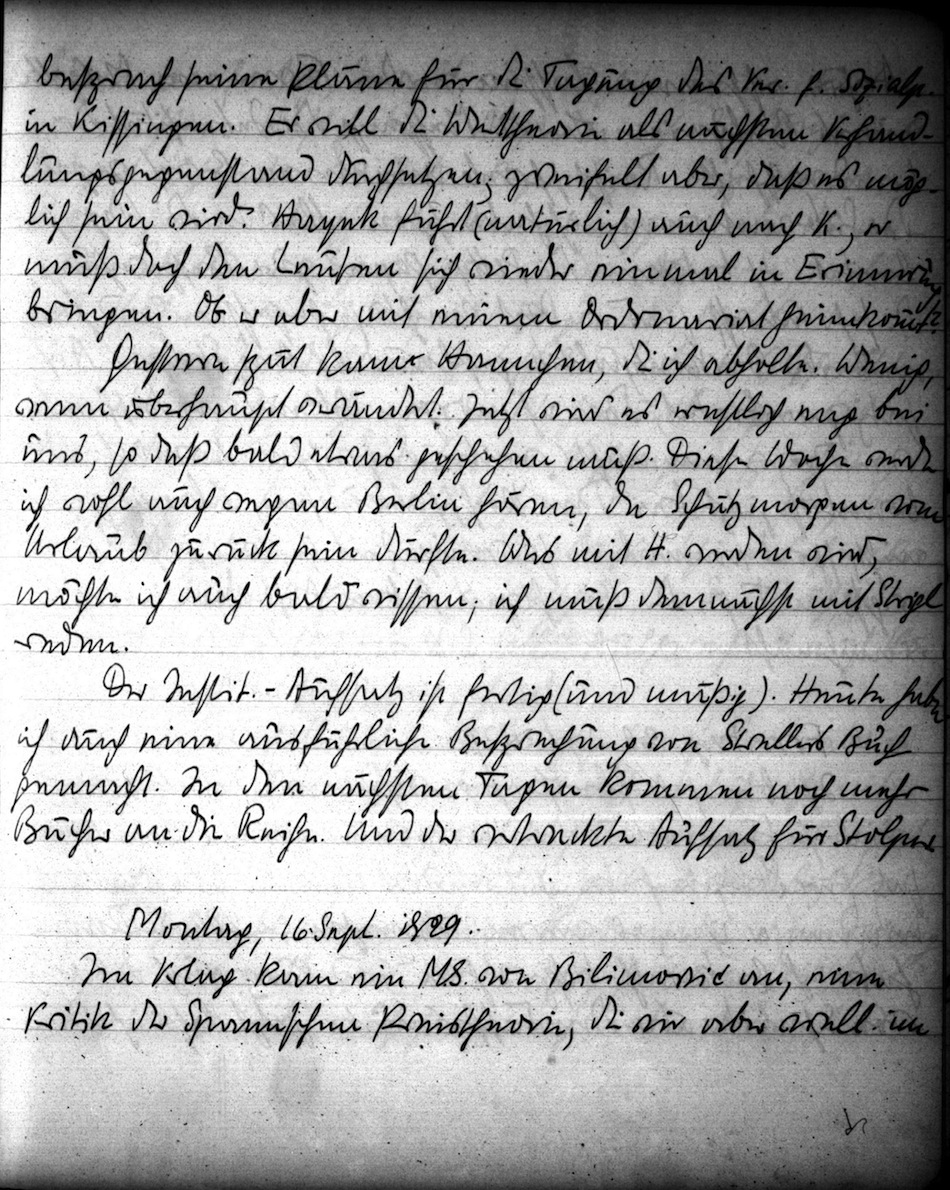 besprach seine Pläne für di Tagung des Ver. f. Sozialp.
in Kissingen. Er will di Werttheorie als nächsten Behand-
lungsgegenstand durchsetzen; zweifelt aber, daß es mög-
lich sein wird. Hayek fährt (natürlich) auch nach K., er
muß doch den Leuten sich wieder einmal in Erinnerung
bringen. Ob er aber mit einem Ordinariat heimkommt?
Gestern spät kam Hannchen, di ich abholte. Wenig,
wenn überhaupt verändert. Jetzt wird es restlos eng bei
uns, so daß bald etwas geschehen muß. Diese Woche werde
ich wohl auch wegen Berlin hören, da Schutz morgen vom
Urlaub zurück sein dürfte. Was mit H. werden wird,
möchte ich auch bald wissen; ich muß demnächst mit Strigl
reden.
Der Instit.-Aufsatz ist fertig (und mäßig). Heute habe
ich auch eine ausführliche Besprechung von Strellers Buch
gemacht. In den nächsten Tagen kommen noch mehr
Bücher an die Reihe. Und der vertrackte Aufsatz für Stolper
Montag, 16. Sept. 1929.
Im Verlag kam ein MS. von Bilimovic an, eine
Kritik der Spannschen Preistheorie, di wir aber im